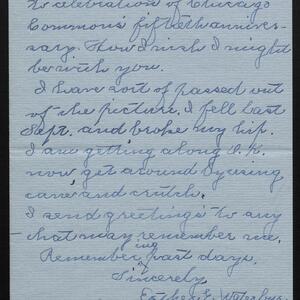 to celebration of Chicago
Commons fiftieth anniver-
sary. How I wish I might
be with you.
I have sort of passed out
of the picture. I fell last
Sept. and broke my hip.
I am getting along O.K.
now get around by using
cane and crutch.
I send greetings to any
that may remember me.
Remembering past days.
Sincerely,
Esther E.